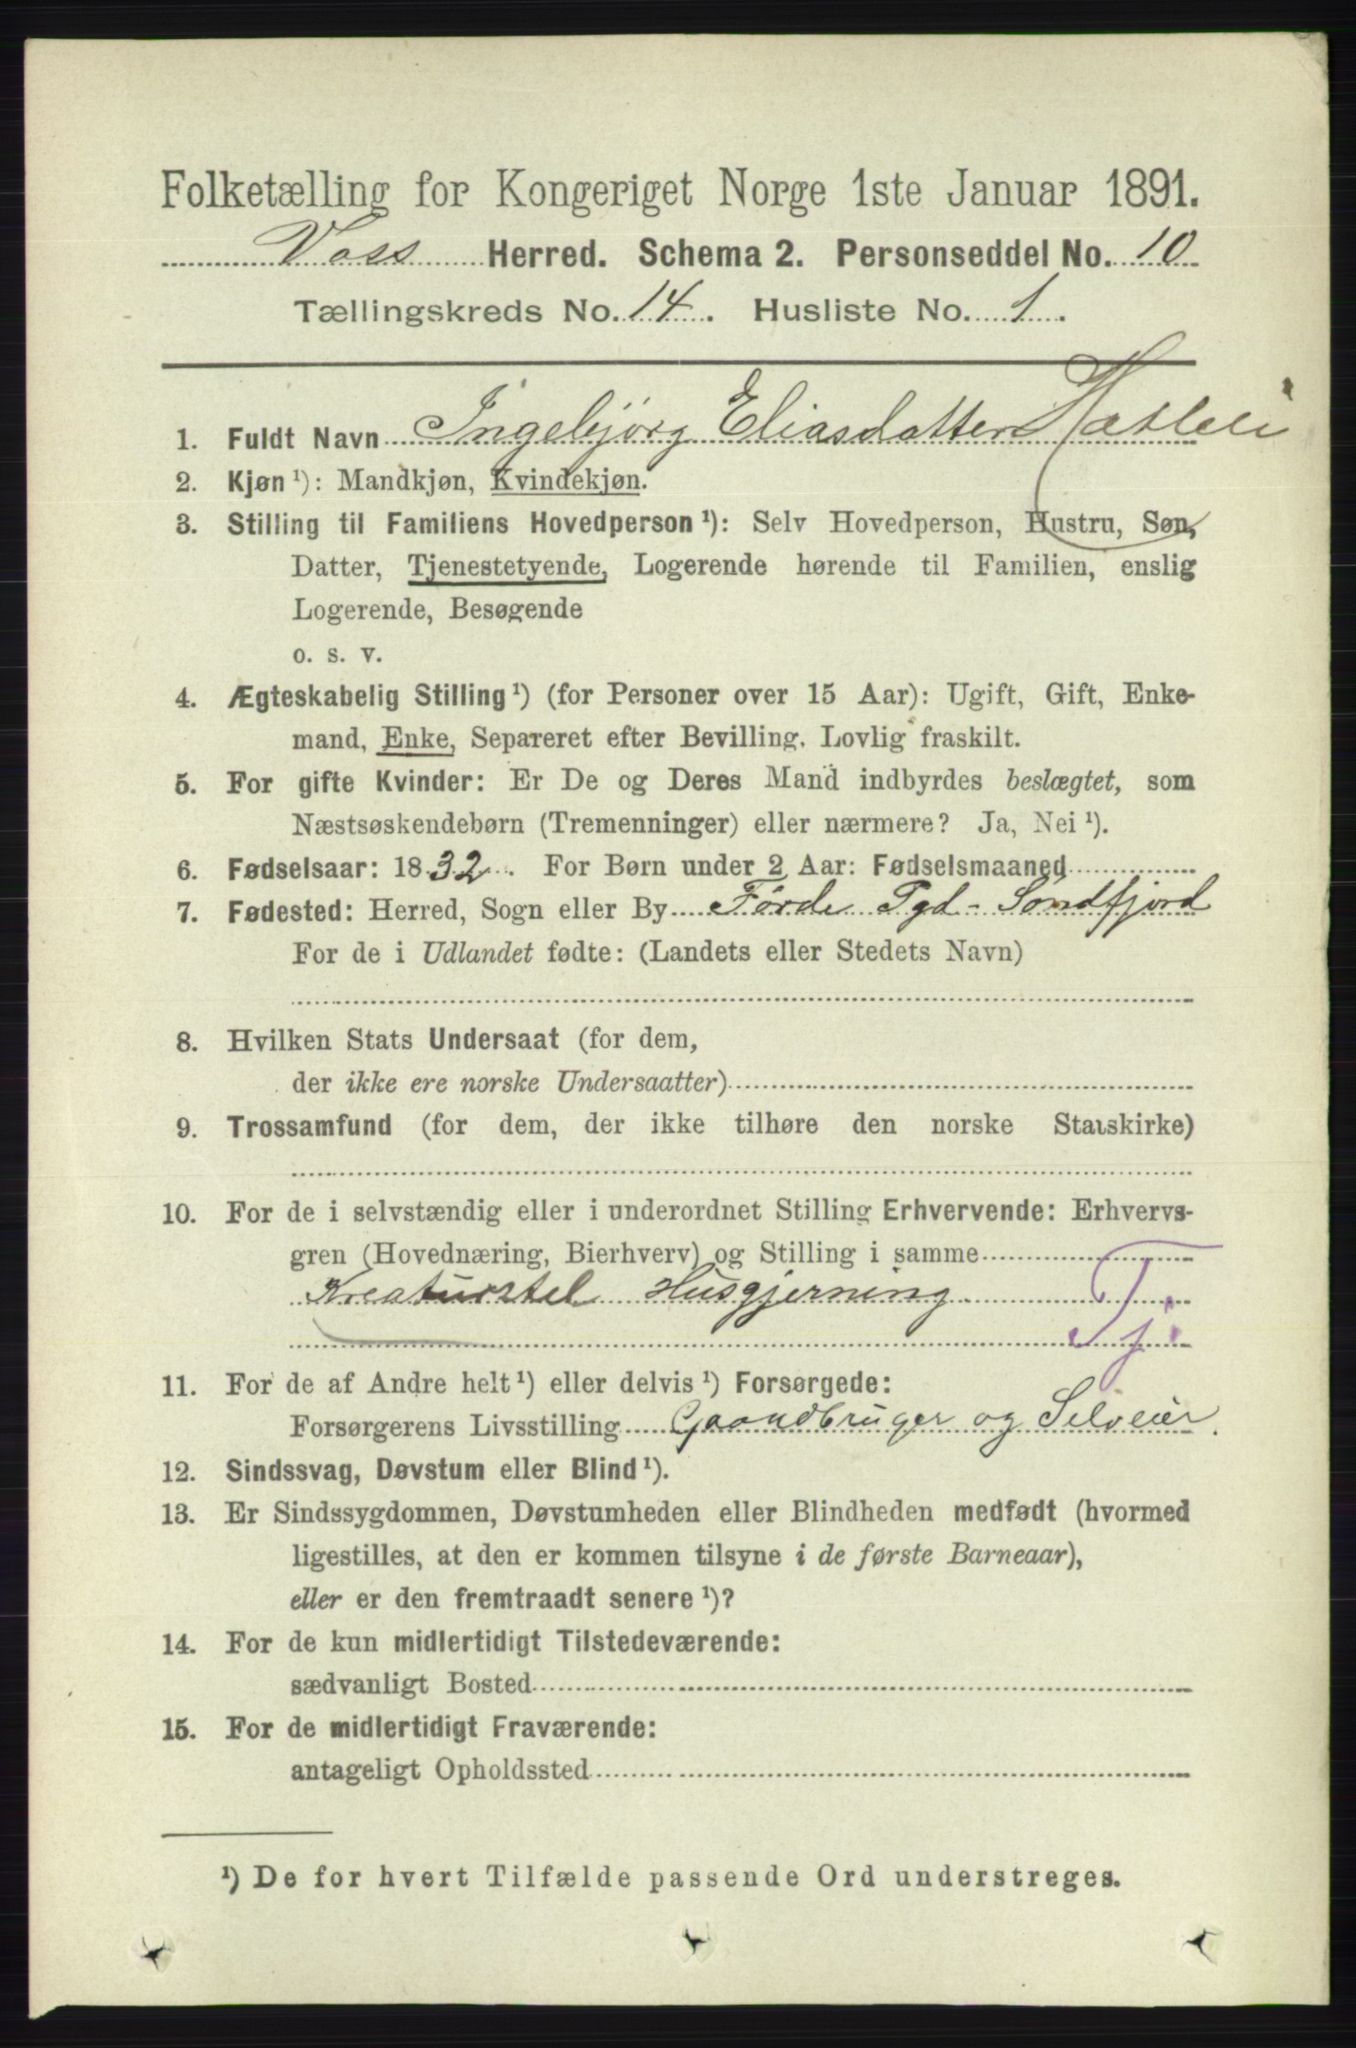 Folketælling for Kongeriget Norge 1ste Januar 1891.
Voss Herred. Schema 2. Personseddel No. 10
Tællingskreds No. 14. Husliste No. 1.
1. Fuldt Navn Ingebjørg Eliasdatter Hætleli
2. Kjøn ¹): Mandkjøn, Kvindekjøn.
3. Stilling til Familiens Hovedperson ¹): Selv Hovedperson, Hustru, Søn,
Datter, Tjenestetyende, Logerende hørende til Familien, enslig
Logerende, Besøgende
o. s. v.
4. Ægteskabelig Stilling ¹) (for Personer over 15 Aar): Ugift, Gift, Enke-
mand, Enke, Separeret efter Bevilling. Lovlig fraskilt.
5. For gifte Kvinder: Er De og Deres Mand indbyrdes beslægtet, som
Næstsøskendebørn (Tremenninger) eller nærmere? Ja, Nei ¹).
6. Fødselsaar: 1832. For Børn under 2 Aar: Fødselsmaaned
7. Fødested: Herred, Sogn eller By Førde Pgd - Søndfjord
For de i Udlandet fødte: (Landets eller Stedets Navn)
8. Hvilken Stats Undersaat (for dem,
der ikke ere norske Undersaatter)
9. Trossamfund (for dem, der ikke tilhøre den norske Statskirke)
10. For de i selvstændig eller i underordnet Stilling Erhvervende: Erhvervs-
gren (Hovednæring, Bierhverv) og Stilling i samme
Kreaturstel Husgjerning Tj.
11. For de af Andre helt ¹) eller delvis ¹) Forsørgede:
Forsørgerens Livsstilling Gaardbruger og Selveier.
12. Sindssvag, Døvstum eller Blind ¹).
13. Er Sindssygdommen, Døvstumheden eller Blindheden medfødt (hvormed
ligestilles, at den er kommen tilsyne i de første Barneaar),
eller er den fremtraadt senere ¹)?
14. For de kun midlertidigt Tilstedeværende:
sædvanligt Bosted
15. For de midlertidigt Fraværende:
antageligt Opholdssted
¹) De for hvert Tilfælde passende Ord understreges.